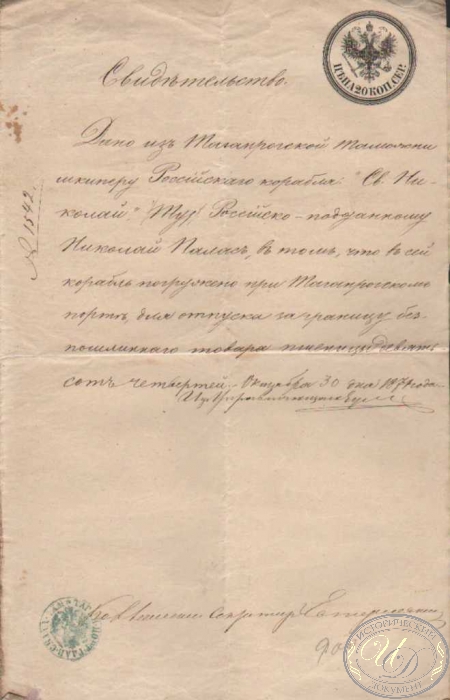 ЦѢНА 20 КОП. СЕР.
Свидѣтельство.
№ 1542.
Дано изъ Таганрогской Таможни
шкиперу Россійскаго корабля: "Св. Ни-
колай," Россійско-подданному
Николай Паласъ, въ томъ, что въ сей
корабль погружено при Таганрогскомъ
портѣ для отпуска за границу без-
пошлиннаго товара пшеницы девять
сотъ четвертей. Октября 30 дня 187 года.
Секретарь
ИСТОРИЧЕСКИЙ
И Д
ДОКУМЕНТ